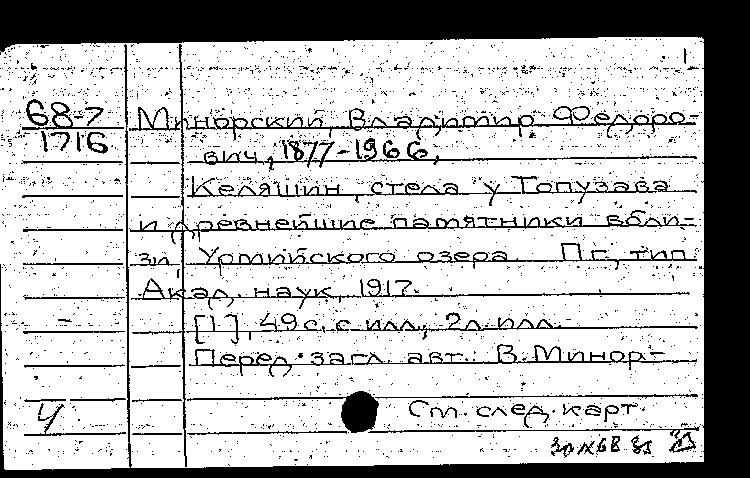 1
68-7 Минорский, Владимир Федоро-
1716 вич, 1877-1966,
Келяшин, стела у Топузава
и древнейшие памятники вбли-
зи Урмийского озера Пг., тип.
Акад. наук, 1917.
[1], 49 с. с илл., 2 л. илл.
Перед загл. авт.: В. Минор-
Ч См. след. карт.